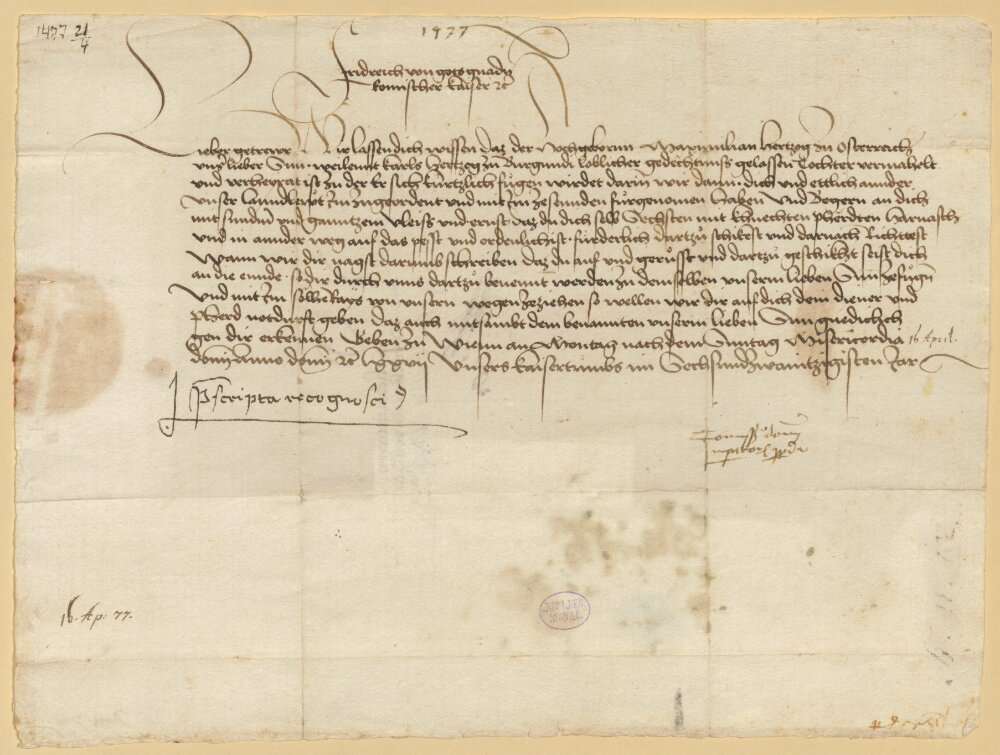 1477 21/4
1477
Fridreich von gots gnadn
Romischer kaiser etc
Lieber getrewr Wir lassen dich wissen daz der Hochgeborun Maximilian Hertzog zu Osterreich
vnser lieber Sun weilennt karls Hertzog zu Burgundi loblicher gedechtnuss gelassen Tochter vermahelt
vnd verheyrat ist zu der Er sich kurtzlich fugen wirdet darin wir dann dich vnd ettlich annder
vnser Lanndlewt Im zugeordent vnd mit Im zesennden furgenomen haben Vnd Begern an dich
mit sundern vnd ganntzem vleiss vnd ernst daz du dich selb Sechsten mit knechten pherdten Harnasch
vnd in annder weg auf das pesst vnd ordenlichist furderlich dartzu schikest vnd darnach Richttest
Wann wir dir nagst darumb schreiben daz du auf vnd gerusst vnd dartzu geschikht seist dich
an die ennde so dir durch vnns dartzu benennt werden zu demselben vnserm lieben Sun zefugen
Vnd mit Im von vnsern wegen zeziehen so wellen wir dir auf dich dein diener vnd
pherd notdurft geben daz auch mitsambt dem benannten vnserm lieben Sun gnediclich
gen dir erkennen Geben zu Wienn an Montag nach dem Sunntag Misericordia 16 April.
domini Anno domini etc Lxxvii Vnsers kaisertumbs im Sechsundzwaintzigisten Jar
Prescripta recognosci
Comissio domini
imperatoris propria
16. Ap. 77.